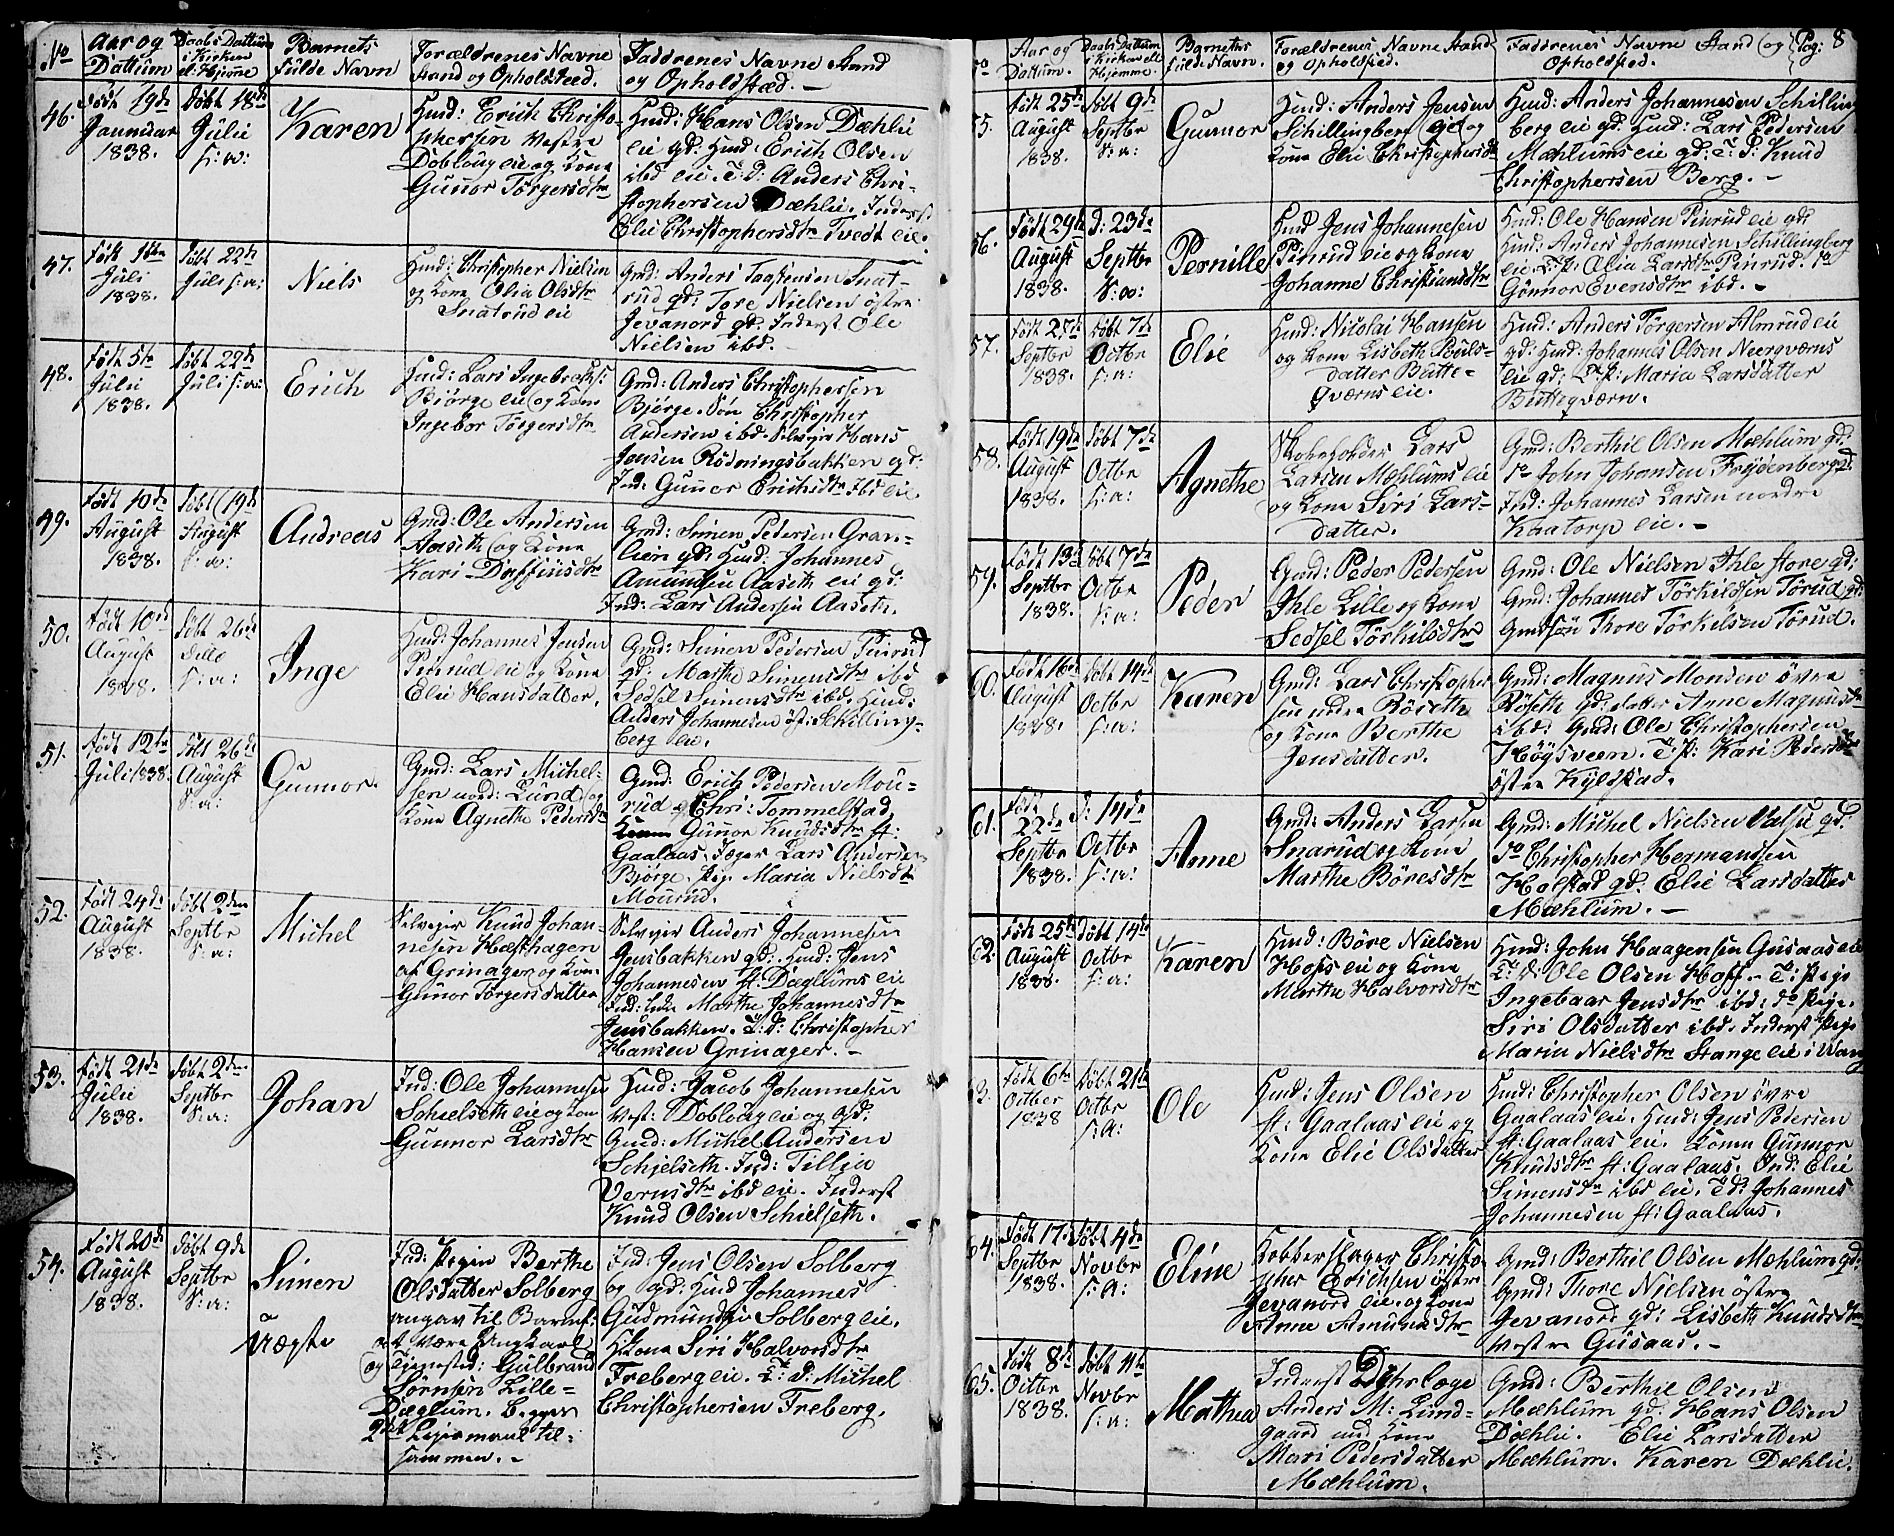 No
Aar og
Dattum
Daabs Dattum
i Kirken
el: Hjeme
Barnets
fulde Navn
Forældrenes Navne
Stand og Opholdsted.
Faddrenes Navne Stand
og Opholdstæd. -
46.
Født 19de
Januuar
1838.
Døbt 18de
Julie
Karen
Huusmd: Erich Christo-
phersen Vestre
Dobloug eie og Kone
Gunor Torgersdtr
Husmd: Hans Olsen Dæhlie
eie gd: Husmd: Erich Olsen
ibd eie. T: d: Anders Chri-
stophersen Dæhlie. Inderst
Elie Christophersdtr Tvedt eie.
47.
Juli
1838.
Døbt 22de
Juli
Niels
Husmd: Christopher Nielsen
og Kone Olia Olsdtr
Snatrud eie
Gmd: Anders Taastensen Snat-
rud gd: Tore Nielsen østre
Jevanord gd. Inderst Ole
Nielsen ibd.
48.
Født 5te
Julie
1838.
Døbt 22de
Juli
Erich
Husmd: Lars Ingebrets:
Biørge eie og Kone
Ingebor Torgersdtr
Gmd: Anders Christophersen
Bjørge. Søn Christopher
Andersen ibd. Selvejer Hans
Jensen Rødningsbakken gd:
Ind: Gunor Erichsdtr Ibd eie
49.
Født 10de
August
1838.
Døbt 19de
August
Andreas
Gmd: Ole Andersen
Aaseth og Kone
Kari Daffinsdtr
Gmd: Simen Pedersen Gran-
lien gd: Husmd: Johannes
Amunsen Aaseth eie gd:
Ind: Lars Andersen Aaseth.
50.
Født 10de
August
1838.
Døbt 26de
Dito
Inge
Husmd: Johannes Jensen
Pinrud eie og Kone
Elie Hansdatter.
Gmd: Simen Pedersen Pinrud
gd: Marthe Simensdtr ibd
Sedsel Simensdtr ibd. Husmd:
Anders Johannesen øst: Schilling-
berg eie.
51.
Født 12te
Juli 1838.
Døbt 26de
August
Gunnor.
Gmd: Lars Michel-
sen nord: Lund og
Kone Agnethe Pedersdtr
Gmd: Erich Pedersen Mou-
rud og Chri: Tommelstad
Gunor Knudsdtr st:
Gaalaas. Jæger Lars Andersen
Bjørge. Pige Maria Nielsdtr
Mourud.
52.
Født 24de
August
1838.
Døbt 2den
Septbr
Michel
Selvejer Knud Johan-
nesen Hæsthagen
af Grinager og Kone
Gunor Torgersdatter
Selvejer Anders Johannesen
Jensbakken gd: Husmd: Jens
Johannesen st: Daglums eie
Ind: Marthe Johannesdtr
Jensbakken. T: d: Christopher
Hansen Grinager. -
53.
Født 21de
Julie
1838.
Døbt 2den
Septbr
Johan
Ind: Ole Johannesen
Schielseth eie og Kone
Gunnor Larsdtr
Husmd: Jacob Johannesen
Vest: Dobloug eie og gd:
Gmd: Michel Andersen
Schjelseth. Ind: Tillia
Vernsdtr ibd eie. Inderst
Knud Olsen Schielseth.
54.
Født 20de
August
1838.
Døbt 9de
Septbr
Simen
Uægte
Ind: Pigen Berthe
Olsdatter Solberg
angav til Barnef:
at være Ungkarl
og Tjenested: Gulbrand
Sørnsen Lille-
Dæglum. begges
2det Lejermaal til-
sammen. -
Ind: Jens Olsen Solberg
og gd: Husmd Johannes
Gudmundsen Solberg eie.
Kone Siri Halvorsdtr
Freberg eie. T: d: Michel
Christophersen Freberg.
Aar og
Dattum.
Daabs Dattum
i Kirken ell
Hjemme.
Barnetes
fulde Navn.
Forældrenes Navne Stand
og Opholdsted.
Faddrenes Navne Stand og
Opholdsted.
Pag: 8
55.
Født 25de
August
1838.
Døbt 9de
Septbr
Gunnor
Husmd: Anders Jensen
Schillingberg eie og
Kone Elie Christophersdtr
Husmd: Anders Johannesen Schilling
berg eie gd: Husmd: Lars Pedersen
Mæhlums eie gd: T: d: Knud
Christophersen Berg. -
56.
Født 29de
August
1838.
D: 23de
Septbr
Pernille
Husmd Jens Johannesen
Pinrud eie og Kone
Johanne Christiansdtr
Husmd: Ole Hansen Pinrud eie gd:
Husmd: Anders Johannesen Schillingberg
eie. T: p: Olia Larsdtr Pinrud. do
Gunnor Evensdtr ibd. -
57.
Født 27de
Septbr
1838.
Døbt 7de
Octbr
Elie
Husmd: Nicolai Hansen
og Kone Lisbeth Pouls-
datter Butte-
qværns eie.
Husmd: Anders Torgersen Almrud eie
gd: Husmd: Johannes Olsen Neerqværns
eie gd: T: p: Maria Larsdatter
Butteqværn.
58.
Født 19de
August
1838.
Døbt 7de
Octbr
Agnethe
Skoleholder Lars
Larsen Mæhlums eie
og Kone Siri Lars-
datter.
Gmd: Berthil Olsen Mæhlum gd:
do John Johansen Frøydenberg gd.
Ind: Johannes Larsen nordre
Kaatorp eie. -
59.
Født 13de
Septbr
1838.
Døbt 7de
Octbr
Peder
Gmd: Peder Pedersen
Ihle Lille og Kone
Sedsel Torkilsdtr
Gmd: Ole Nielsen Ihle store gd:
Gmd: Johannes Torkildsen Torud gd:
Gmdsøn Thore Torkilsen Torud.
60.
Født 16de
August
1838.
Døbt 14de
Octbr
Karen
Gmd: Lars Christopher
sen nedre Røseth
og Kone Berthe
Jensdatter.
Gmd: Magnus Monsen øvre
Røseth gd: datter Anne Magnusdtr
ibd: Gmd: Ole Christophersen
Høgsveen. T: p: Kari Pedersdtr
østre Kylstad.
61.
Født
22de
Septbr
1838.
D: 14de
Octbr
Anne
Gmd: Anders Larsen
Snarud og Kone
Marthe Børesdtr
Gmd: Michel Nielsen Valsje gd.
do Christopher Hermansen
Holstad gd: Elie Larsdatter
Mæhlum. -
62.
Født 25de
August
1838.
Døbt 14de
Octbr
Karen
Husmd: Børe Nielsen
Hofs eie og Kone
Marthe Halvorsdtr
Husmd: John Haagensen Gusaas eie
T: d: Ole Olsen Hoff. - T: Pige
Ingebaar Jensdtr ibd: do Pige.
Siri Olsdatter ibd. Inderst Pige
Maria Nielsdtr Stange eie i Wang
63.
Født 6te
Octber
1838
Døbt 21de
Octbr
Ole
Husmd: Jens Olsen
st: Gaalaas eie og
Kone Elie Olsdatter
Husmd: Christopher Olsen øvre
Gaalaas eie. Husmd: Jens Pedersen
st: Gaalaas eie. Kone Gunnor
Knudsdtr st: Gaalaas. Ind: Elie
Simensdtr ibd eie. T: d: Johannes
Johannesen st: Gaalaas.
64.
Født 17de
Septbr
1838.
Døbt 4de
Novbr
Eline
Kobberslager Christo-
pher Erichsen østre
Jevanord eie. og Kone
Anne Amunsdtr
Gmd: Berthil Olsen Mæhlum gd:
Gmd: Thore Nielsen østre
Jevanord gd: Lisbeth Knudsdtr
Vestre Gusaas. -
65.
Født 8de
Octbr
1838.
Døbt 11te
Novbr
Mathea
Inderst Dyrlæge
Anders M: Lund-
gaard und Kone
Mari Pedersdatter
Mæhlum.
Gmd: Berthil Olsen
Mæhlum gd: Hans Olsen
Dæhlie. Elie Larsdatter
Mæhlum. Karen Dæhlie.